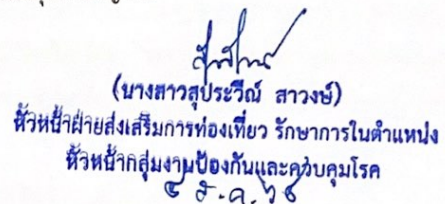 (นางสาวสุประวีณ์ สาวงษ์)
หัวหน้าฝ่ายส่งเสริมการท่องเที่ยว รักษาการในตำแหน่ง
หัวหน้ากลุ่มงานป้องกันและควบคุมโรค
ธ.ค.